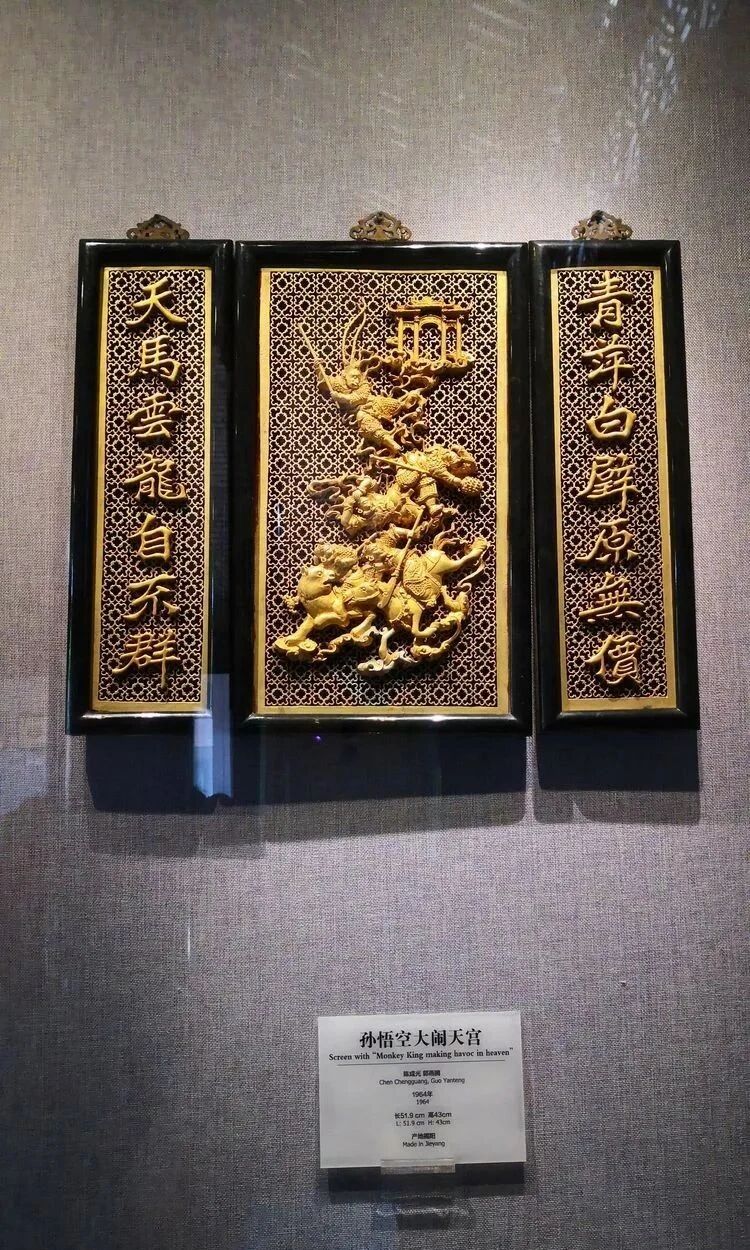 青萍白璧原無價
天馬雲龍自不群
孙悟空大闹天宫
Screen with "Monkey King making havoc in heaven"
陈成光
Chen Chengguang, Guo Yanteng
1964年
1964
长51.9 cm 高43cm
L: 51.9 cm H: 43cm
产地揭阳
Made in Jieyang